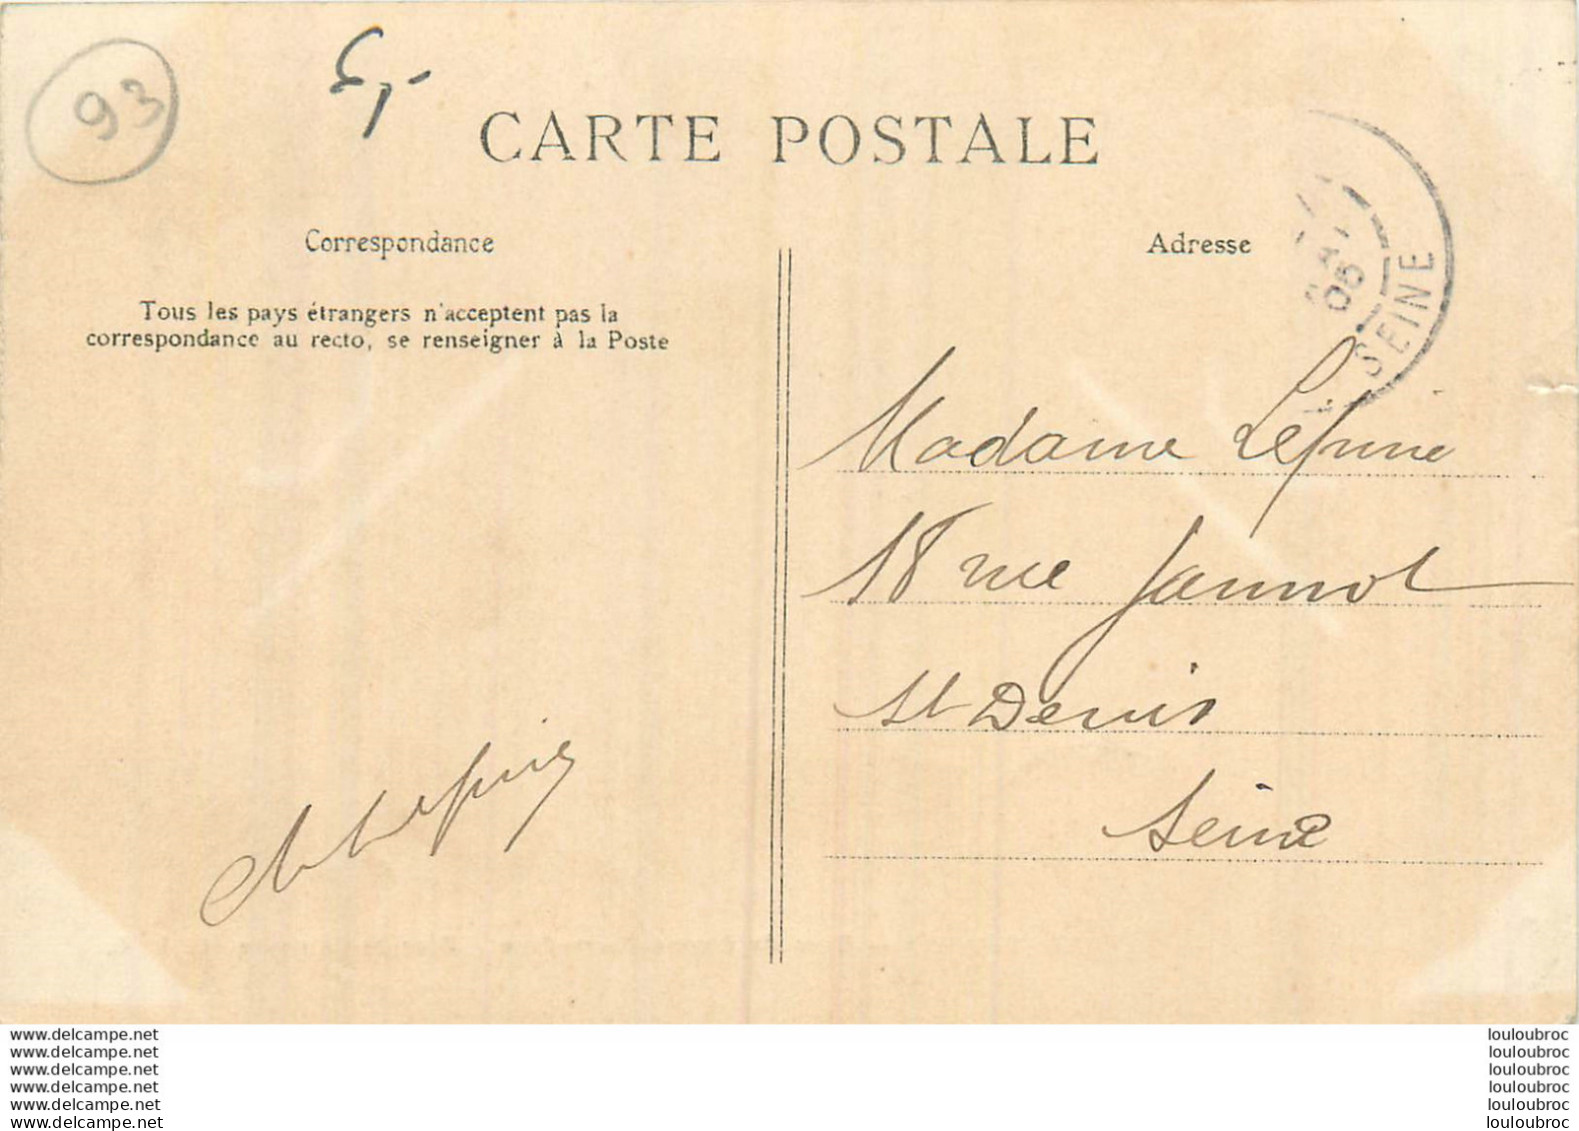 93
CARTE POSTALE
Correspondance
Adresse
Tous les pays étrangers n'acceptent pas la
correspondance au recto, se renseigner à la Poste
05
SEINE
Madame Lépine
18 rue Jannot
St Denis
Seine
Lépine
www.delcampe.net
www.delcampe.net
www.delcampe.net
www.delcampe.net
www.delcampe.net
www.delcampe.net
louloubroc
louloubroc
louloubroc
louloubroc
louloubroc
louloubroc